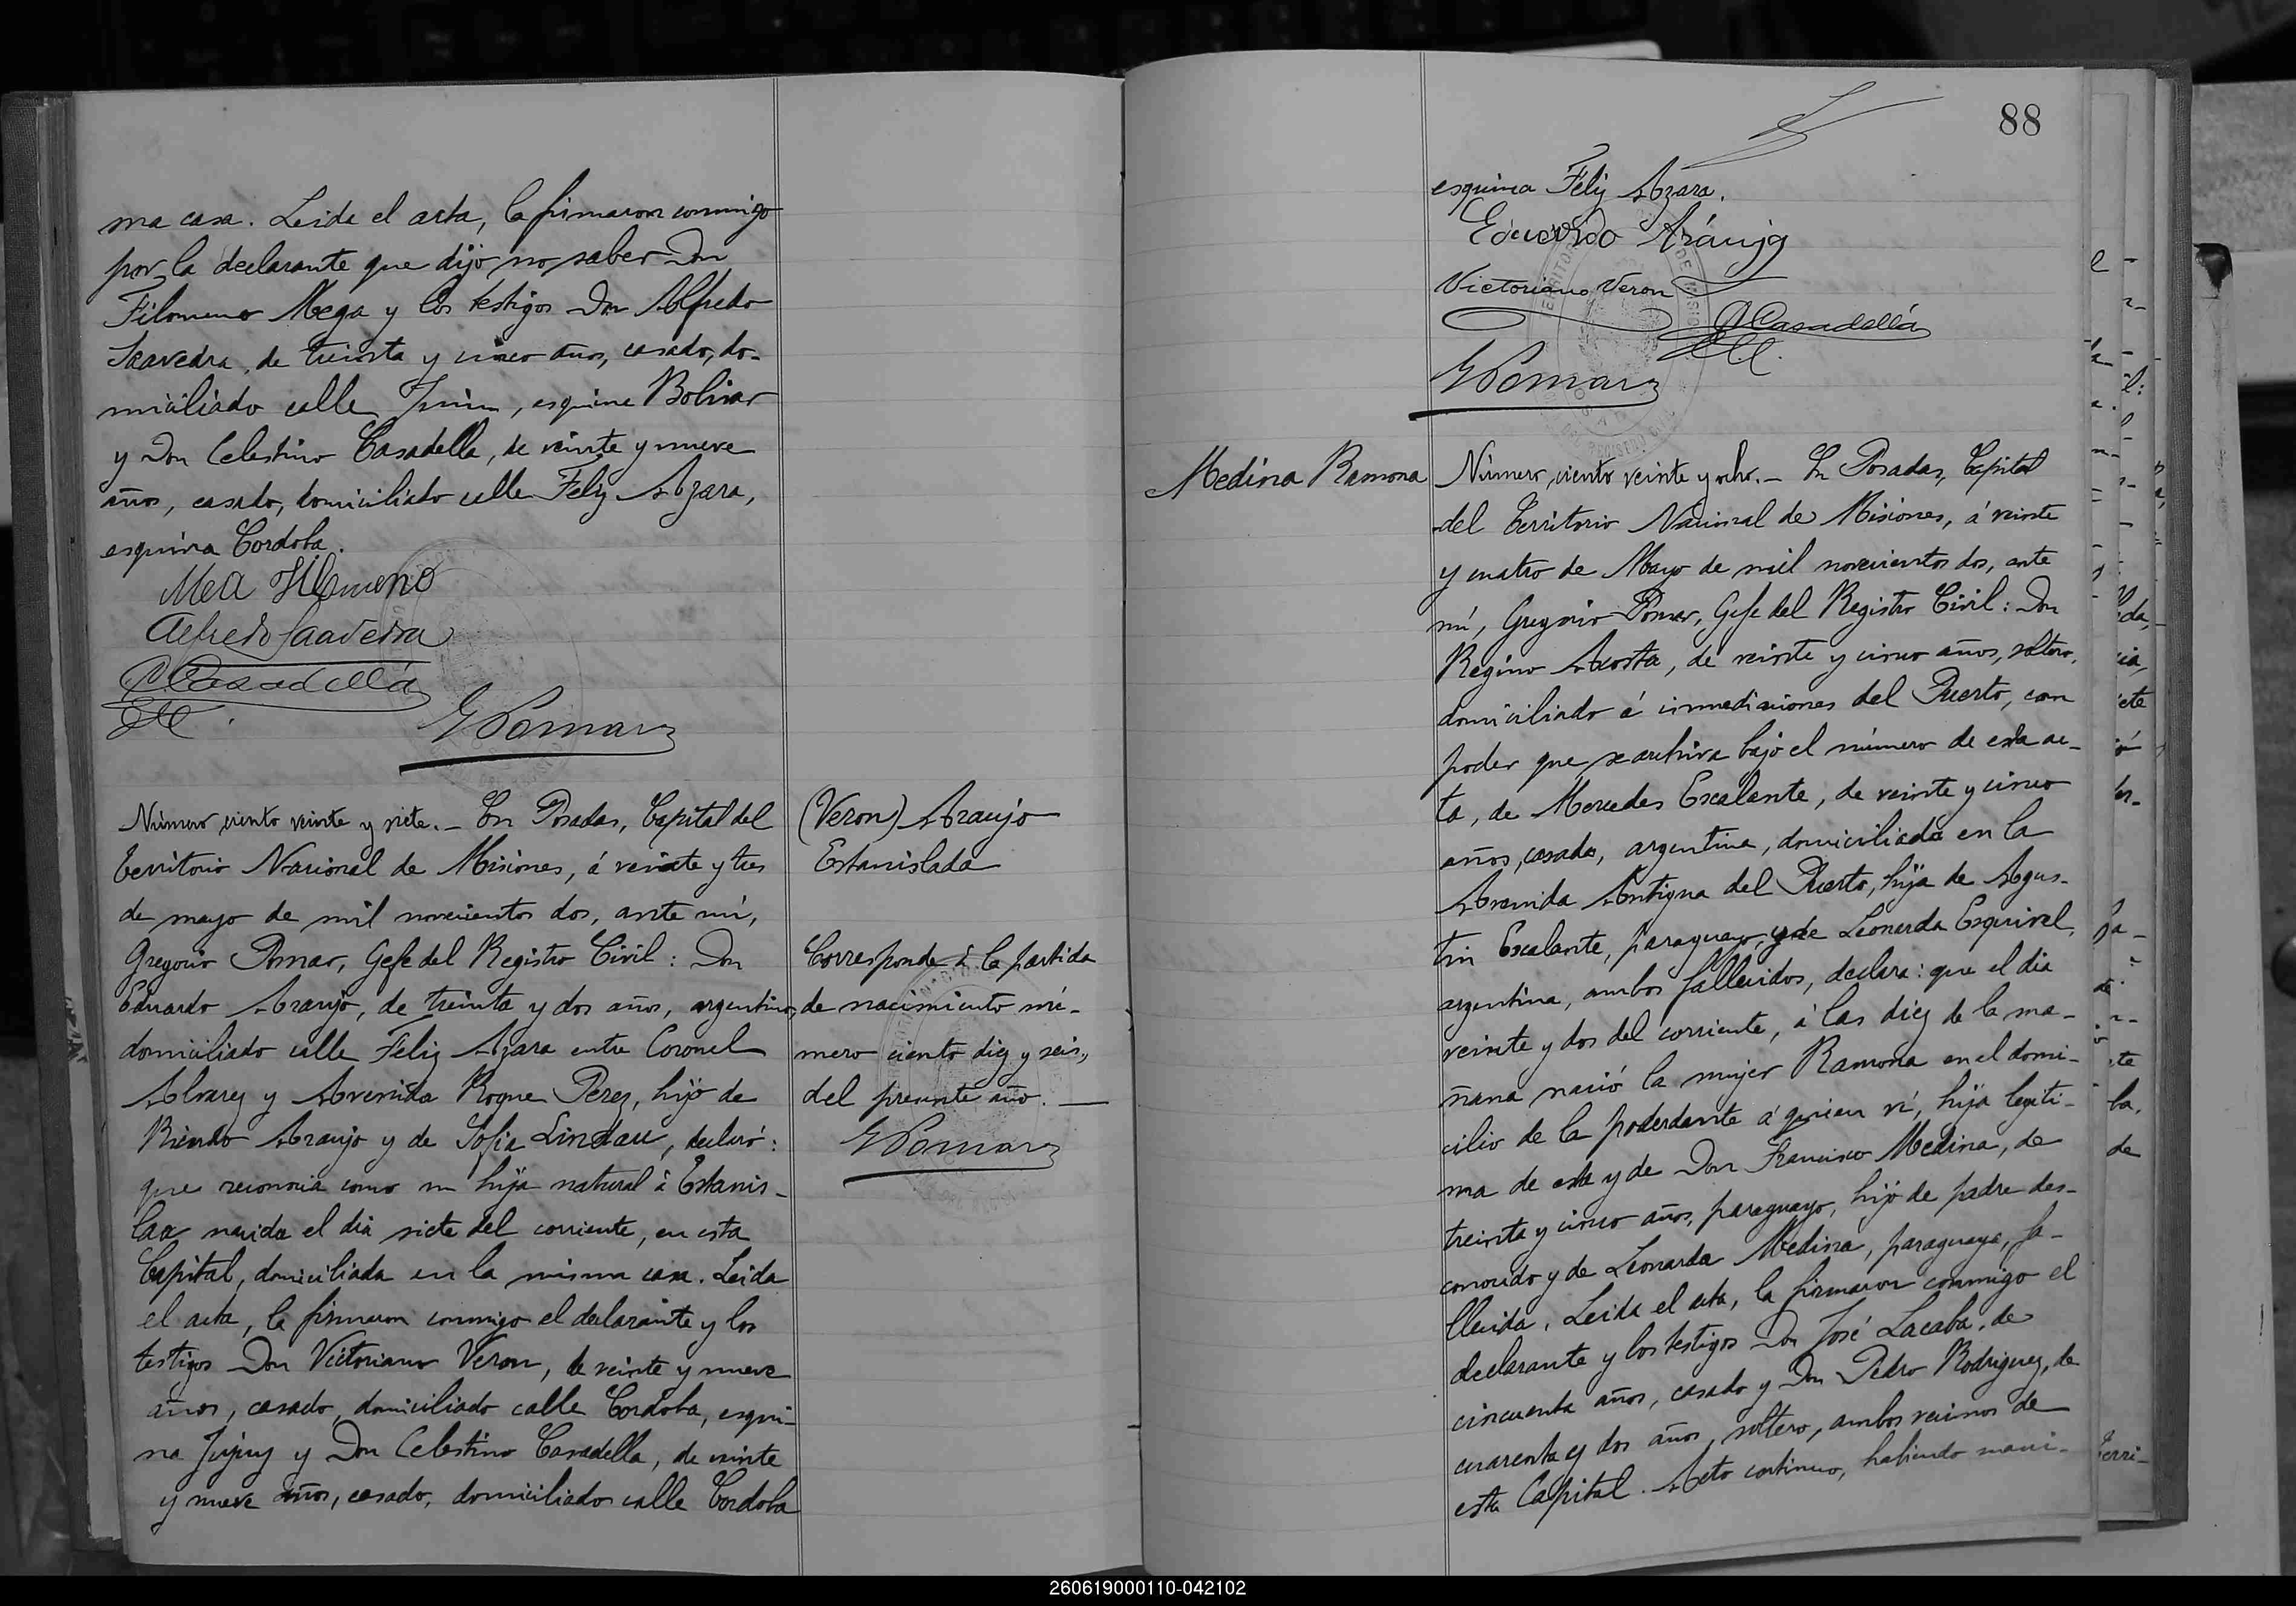 ma casa. Leida el acta, la firmaron conmigo
por la declarante que dijo no saber Don
Filomeno Mega y los testigos Don Alfredo
Saavedra, de treinta y cinco años, casado, do-
miciliado calle Junin, esquina Bolivar
y Don Celestino Casadella, de veinte y nueve
años, casado, domiciliado calle Feliz Azara,
esquina Cordoba.
Mea Filomeno
Alfredo Saavedra
C Casadellá
G Pomar
Número ciento veinte y siete. – En Posadas, Capital del
Territorio Nacional de Misiones, á veinte y tres
de mayo de mil novecientos dos, ante mí,
Gregorio Pomar, Gefe del Registro Civil: Don
Eduardo Araujo, de treinta y dos años, argentino,
domiciliado calle Feliz Azara entre Coronel
Alvarez y Avenida Roque Perez, hijo de
Araujo y de Sofia Lindau, declaró:
que reconocia como su hija natural á Estanis-
laa nacida el dia siete del corriente, en esta
Capital, domiciliada en la misma casa. Leida
el acta, la firmaron conmigo el declarante y los
testigos Don Victoriano Veron, de veinte y nueve
años, casado, domiciliado calle Cordoba, esqui-
na Jujuy y Don Celestino Casadella, de veinte
y nueve años, casado, domiciliado calle Cordoba
(Veron) Araujo
Estanislada
Corresponde á la partida
de nacimiento nú-
mero ciento diez y seis,
del presente año. —
G Pomar
88
esquina Feliz Azara.
Eduardo Araujo
Victoriano Veron
C Casadellá
G Pomar
Medina Ramona
Número ciento veinte y ocho. – En Posadas, Capital
del Territorio Nacional de Misiones, á veinte
y cuatro de Mayo de mil novecientos dos, ante
mí, Gregorio Pomar, Gefe del Registro Civil: Don
Regino Acosta, de veinte y cinco años, soltero,
domiciliado á inmediaciones del Puerto, con
poder que se archiva bajo el número de esta ac-
ta, de Mercedes Escalante, de veinte y cinco
años, casada, argentina, domiciliada en la
Avenida Antigua del Puerto, hija de Agus-
tin Escalante, paraguayo, y de Leonarda Esquivel,
argentina, ambos fallecidos, declara: que el dia
veinte y dos del corriente, á las diez de la ma-
ñana nació la mujer Ramona en el domi-
cilio de la poderdante á quien ví, hija legiti-
ma de esta y de Don Francisco Medina, de
treinta y cinco años, paraguayo, hijo de padre des-
conocido y de Leonarda Medina, paraguaya, fa-
llecida. Leida el acta, la firmaron conmigo el
declarante y los testigos Don José Lacaba, de
cincuenta años, casado y Don Pedro Rodriguez, de
cuarenta y dos años, soltero, ambos vecinos de
esta Capital. Acto continuo, habiendo mani-
260619000110-042102